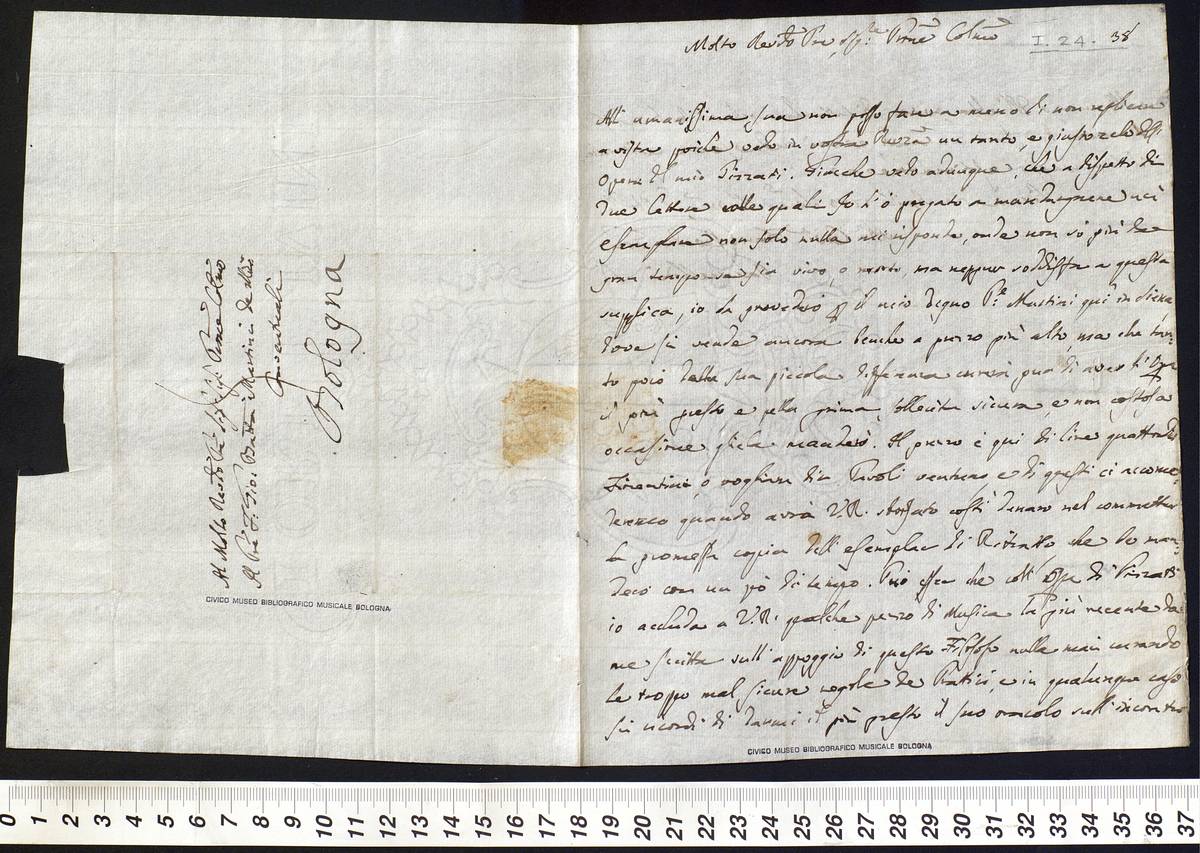 Al Molto Rev.do
Al P̃re F. Gio: Batta Martini de Min:
Conventuali
Bologna
CIVICO MUSEO BIBLIOGRAFICO MUSICALE BOLOGNA
Molto Revdo Pre, Colmo
I. 24. 38
All umanissima sua non posso fare a meno di non replicare
a vista poichè vedo in vostra un tanto, e giusto zelo
Opera del mio Pizzati. Giacche vedo adunque, che a dispetto di
due Lettere colle quali Io l'ò pregato a mandarmene
esemplare non solo nulla mi risponde, onde non sò più da
gran tempo se sia vivo, o morto, ma neppur soddisfa a questa
supplica, io la provederò il mio degno P.e Martini qui in Siena
dove si vende ancora benche a prezzo più alto, ma che
poiò della sua piccola differenza curerà di aver
il più presto e nella prima, sollecita sicura, e non costosa
occasione gliela manderò. Il prezzo è qui di lire quattordici
Fiorentine, o vogliam dir Pavoli ventuno e di questi ci
quando avrà V.R. costì denaro nel commetter
la promessa copia dell'esemplar di Ritratto che le man-
derò con un pò di tempo. Può esser che coll' Opra di Pizzati
io accluda a V.R. qualche pezzo di Musica la più recente da
me scritta sull'appoggio di questo Filosofo nulla mai curando
le troppo mal sicure regole de Prattici, e in qualunque caso
si ricordi di darmi il più presto il suo oracolo sull'incontro
CIVICO MUSEO BIBLIOGRAFICO MUSICALE BOLOGNA
0 1 2 3 4 5 6 7 8 9 10 11 12 13 14 15 16 17 18 19 20 21 22 23 24 25 26 27 28 29 30 31 32 33 34 35 36 37